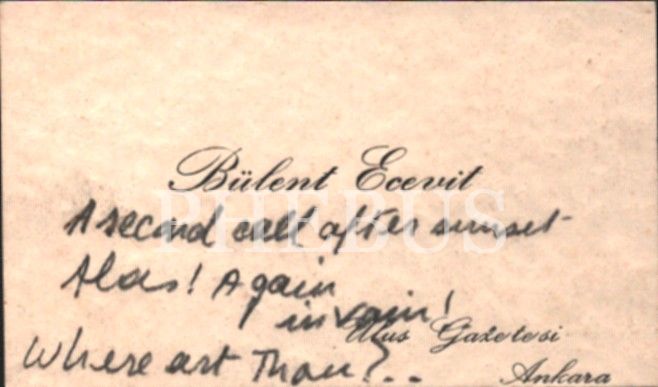 Bülent Ecevit
PHEBUS
A second call after sunset
Alas! Again
in vain!
Ulus Gazetesi
Where art Thou?..
Ankara